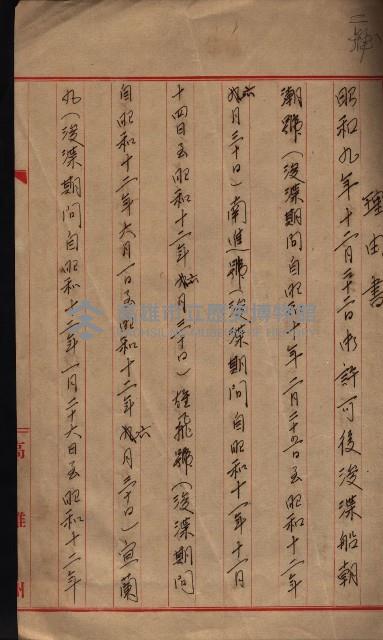 理由書
昭和九年十二月二十二日御許可後浚渫船朝
潮號(浚渫期間自昭和十年二月二十五日至昭和十二年
六月三十日)南進號(浚渫期間自昭和十一年十一月
十四日至昭和十二年六月三十日)雄飛號(浚渫期間
自昭和十二年六月一日至昭和十二年六月三十日)宜蘭
丸(浚渫期間自昭和十二年一月二十六日至昭和十二年
高雄州
高雄市立歷史博物館
KAOHSIUNG MUSEUM OF HISTORY